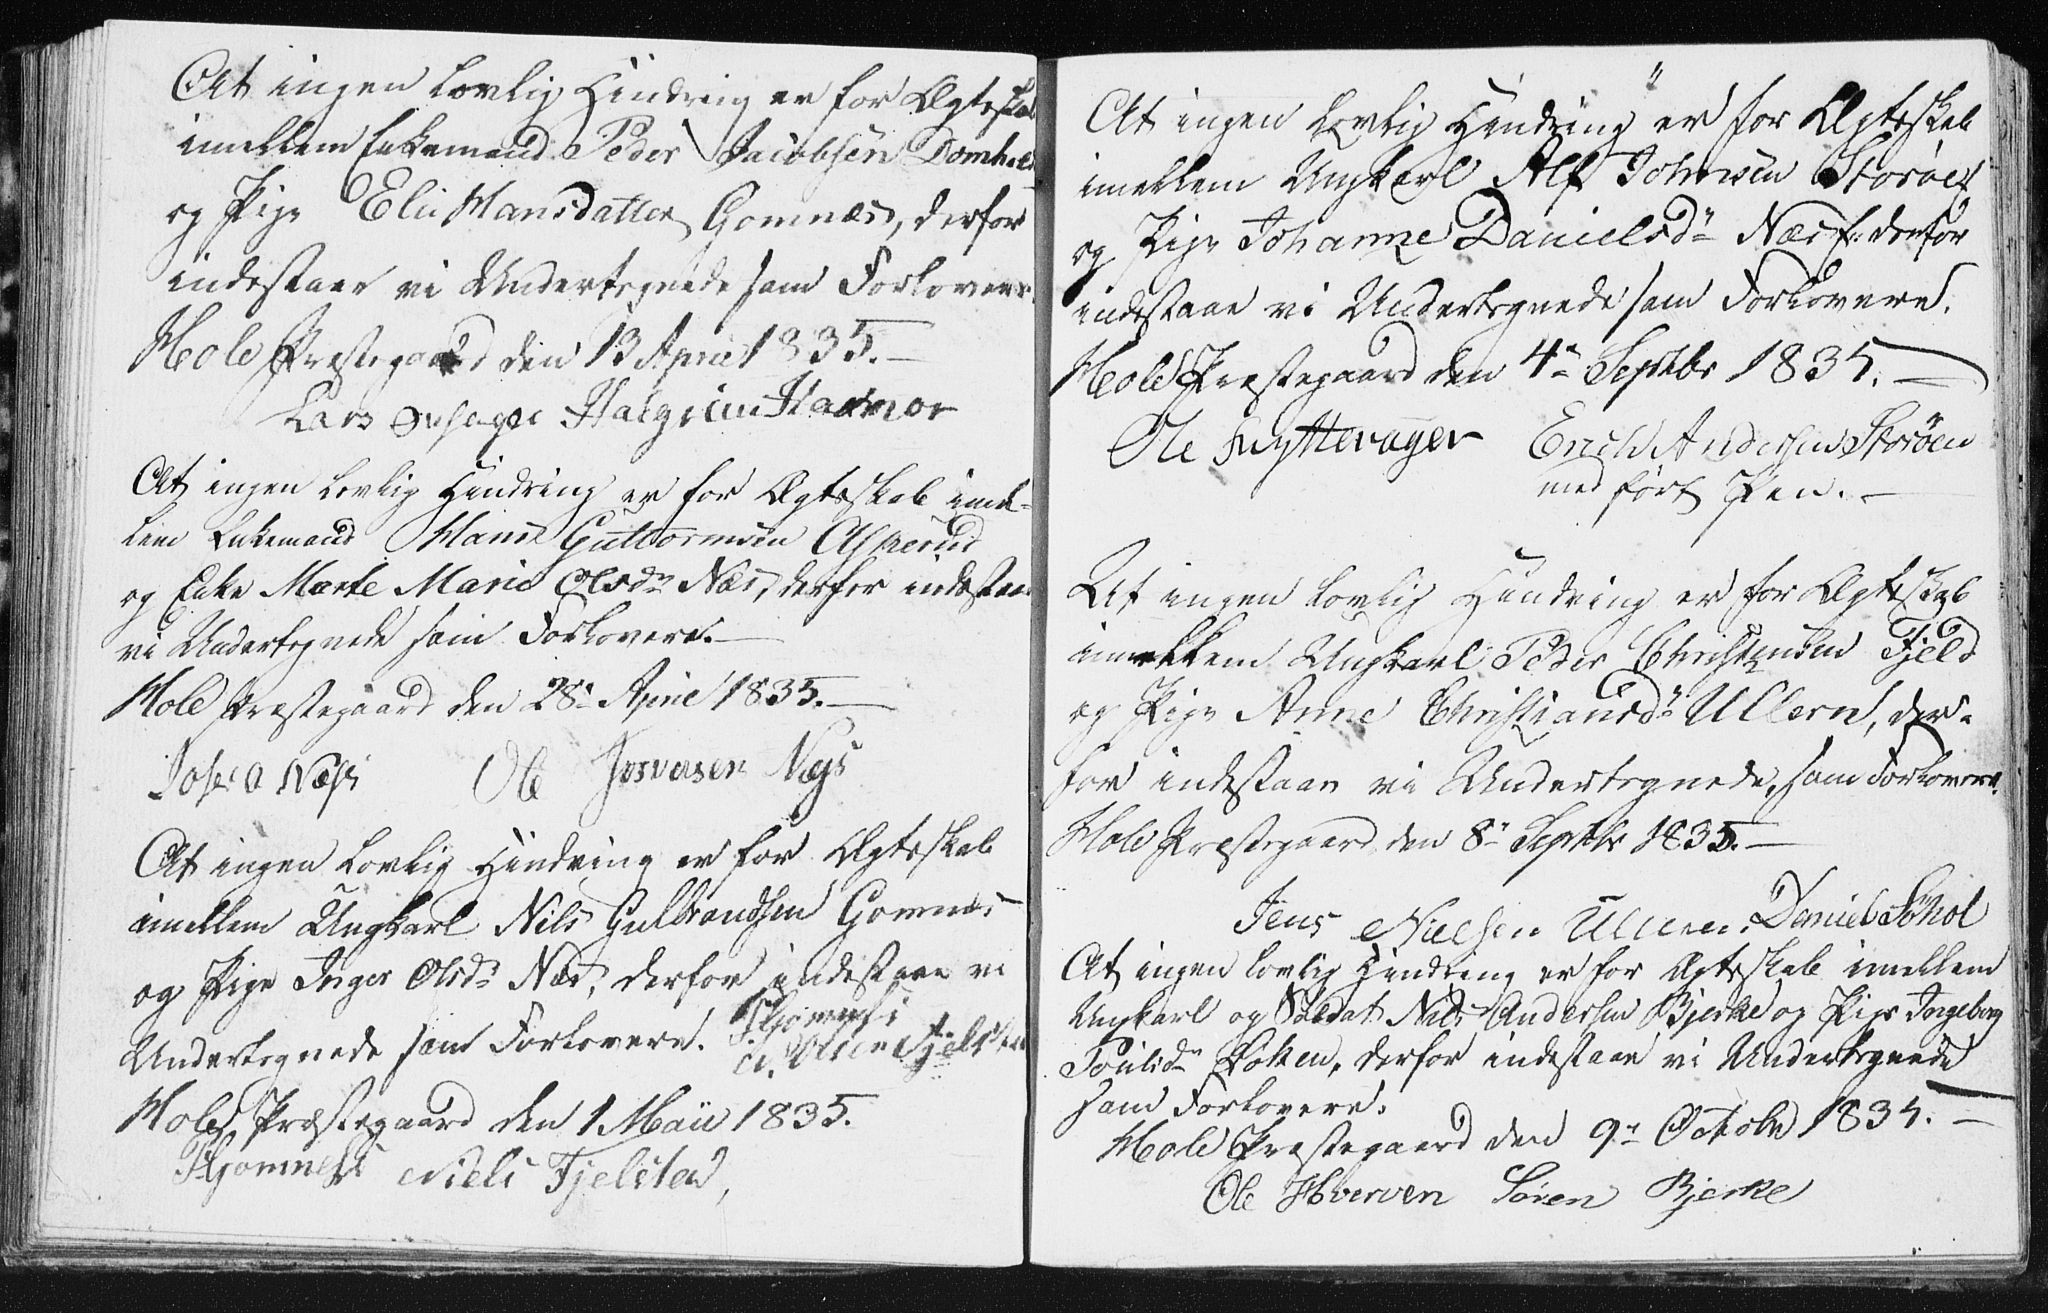 At ingen lovlig Hindring er for Ægteskab
imellem Enkemand Peder Jacobsen
og Pige Elie Hansdatter Gomnæs, derfor
indestaae vi Undertegnede som Forlovere.
Hole Præstegaard den 13 April 1835.
Lars
At ingen lovlig Hindring er for Ægteskab imel-
lem Enkemand Hans Guttormsen Asperud
og Enke Marte Marie Olsdr Næs, derfor indestaae
vi Undertegnede som Forlovere.
Hole Præstegaard den 28de April 1835.
Ole Næs
At ingen lovlig Hindring er for Ægteskab
imellem Ungkarl Nils Gulbrandsen Gomnæs
og Pige Inger Olsdr Næs, derfor indestaae vi
Undertegnede som Forlovere.
Hole Præstegaard den 1 Maii 1835.
Niels Fjelstad,
At ingen lovlig Hindring er for Ægteskab
imellem Ungkarl Alf Johnsen Storøen
og Pige Johanne Danielsdr Næs, derfor
indestaae vi Undertegnede som Forlovere.
Hole Præstegaard den 4de Septbr 1835.
Ole Svyttevager Erich Andersen Storøen
med ført Pen.
At ingen lovlig Hindring er for Ægteskab
imellem Ungkarl Peder Christensen Fjeld
og Pige Anne Christiansdr Ullern, der-
for indestaae vi Undertegnede, som Forlovere.
Hole Præstegaard den 8de Septbr 1835.
Jens Nielsen Ullern. Daniel Sohol
At ingen lovlig Hindring er for Ægteskab imellem
Ungkarl og Soldat Nils Andersen Bjerke og Pige Ingeborg
Poulsdr Loken, derfor indestaae vi Undertegnede
som Forlovere.
Hole Præstegaard den 9de Octobr 1835.
Ole Hverven Søren Bjerke